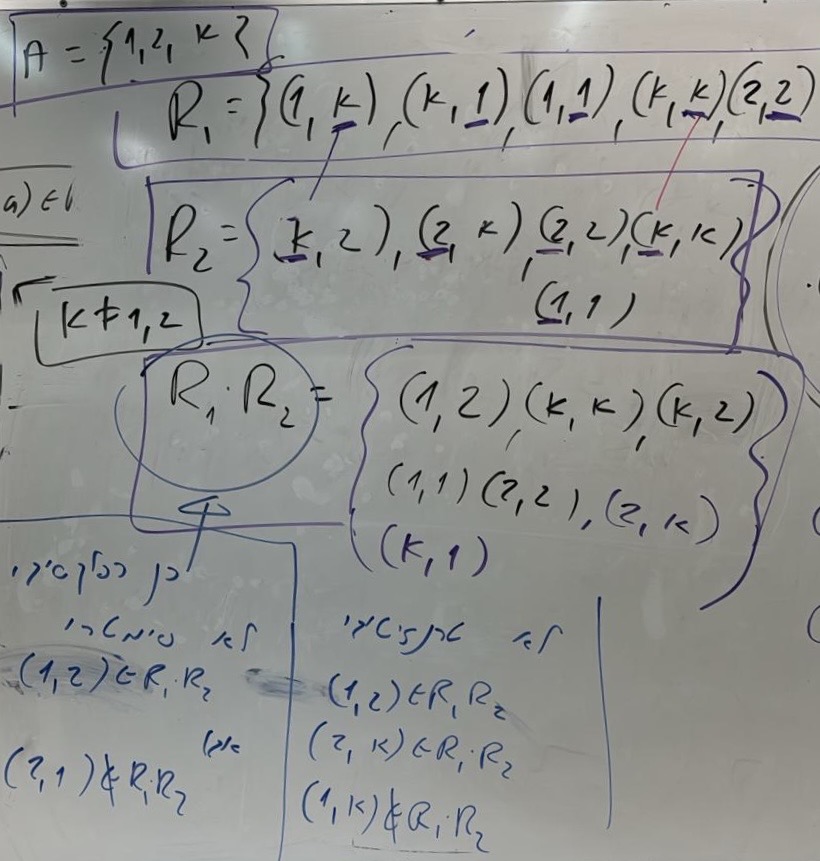 A = {1, 2, k}
R₁ = {(1, k), (k, 1), (1, 1), (k, k), (2, 2)
a) ∈
R₂ = {(k, 2), (2, k), (2, 2), (k, k)
(1, 1)}
k ≠ 1, 2
R₁ · R₂ = {(1, 2), (k, k), (k, 2)
(1, 1) (2, 2), (2, k)
(k, 1)}
כן רפלקסיבי
לא סימטרי
(1, 2) ∈ R₁ · R₂
אבל
(2, 1) ∉ R₁ · R₂
לא טרנזיטיבי
(1, 2) ∈ R₁ R₂
(2, k) ∈ R₁ · R₂
(1, k) ∉ R₁ · R₂